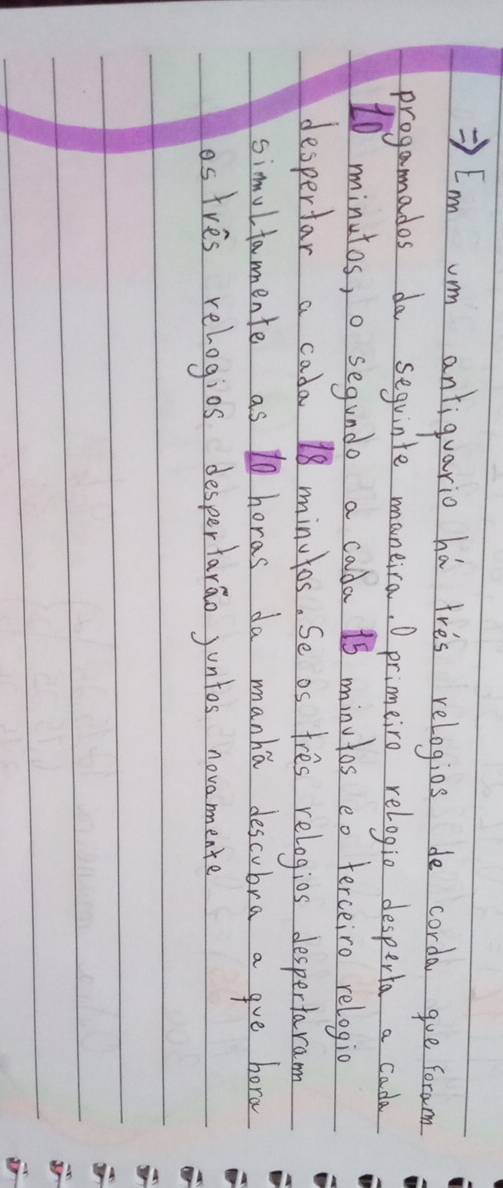 => Em um antiquario há três relogios de corda que foram
progamados da seguinte maneira. O primeiro relogio desperta a cada
10 minutos, o segundo a cada 15 minutos e o terceiro relogio
despertar a cada 18 minutos. Se os três relogios despertaram
simultamente as 10 horas da manhã descubra a que hora
os três relogios despertarão juntos novamente